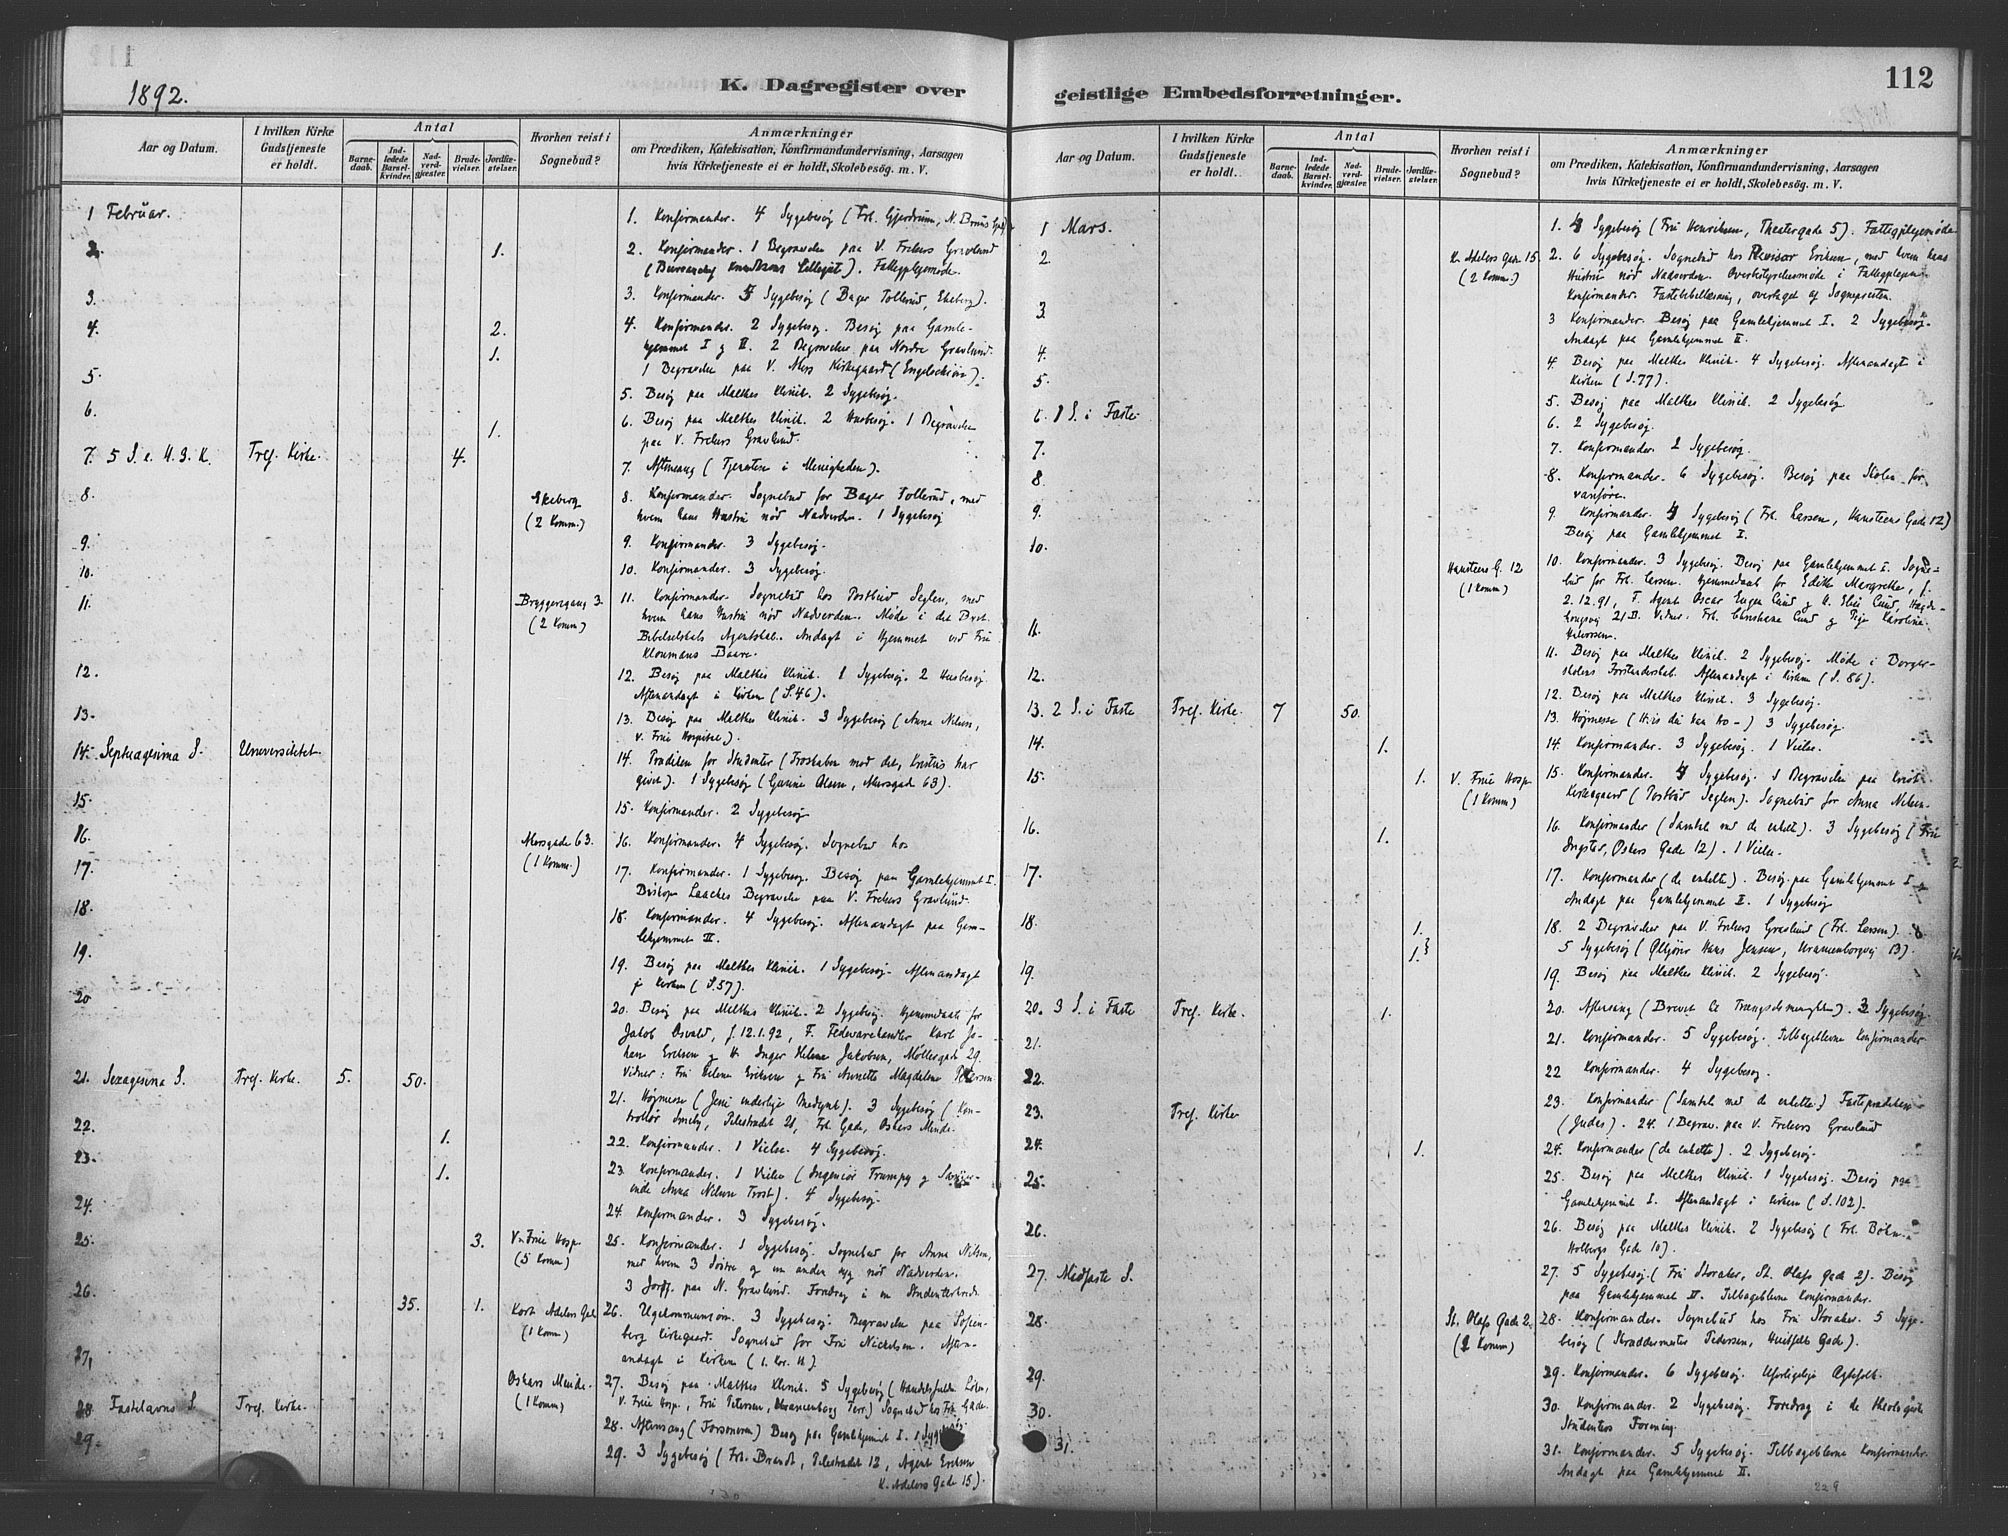 1892.
K. Dagregister over
Aar og Datum.
I hvilken Kirke Gudstjeneste er holdt.
Antal
Barnedaab.
Indledede Barselkvinder.
Nadverdgjæster.
Brudevielser.
Jordfæstelser.
Hvorhen reist i Sognebud?
Anmærkninger
om Prædiken, Katekisation, Konfirmandundervisning, Aarsagen
hvis Kirketjeneste ei er holdt, Skolebesög. m. V.
1 Februar.
1. Konfirmander. 4 Sygebesøg (Frk. Gjerdrum,
2.
1.
2. Konfirmander. 1 Begravelse paa V. Frelsers Gravlund
Fattigplejemøde.
3.
3. Konfirmander. 4 Sygebesøg (Bager Tollerud, Ekeberg).
4.
2.
1.
4. Konfirmander. 2 Sygebesøg. Besøg paa Gamle-
hjemmet I og II. 2 Begravelser paa Nordre Gravlund.
1 Begravelse paa V. Akers Kirkegaard
5.
5. Besøg paa Malthes Klinik. 2 Sygebesøg.
6.
1.
6. Besøg paa Malthes Klinik. 2 Husbesøg. 1 Begravelse
paa V. Frelsers Gravlund.
7. 5 S. e. H. 3. K. Tref. Kirke. 4.
7. Aftensang (Tjeneste i Menigheden).
8.
Ekeberg
(2 Komm.)
8. Konfirmander. Sognebud for Bager Tollerud, med
hvem hans Hustru nød Nadverden. 1 Sygebesøg
9.
9. Konfirmander. 3 Sygebesøg.
10.
10. Konfirmander. 3 Sygebesøg.
11.
Bryggerigang 3.
(2 Komm)
11. Konfirmander. Sognebud hos Postbud Seglen, med
hvem hans Hustru nød Nadverden. Møde i det
Bibelselskabs Agentskab. Andagt i Hjemmet ved Fru
Baare.
12.
12. Besøg paa Malthes Klinik. 1 Sygebesøg. 2 Husbesøg.
Aftenandagt i Kirken (S. 46).
13.
13. Besøg paa Malthes Klinik. 3 Sygebesøg (Anna Nilsen,
V. Frue Hospital).
14. Septuagesima S. Universitetet
14. Prædiken for Studenter (Troskaben mod det, Kristus har
givet). 1 Sygebesøg (Akersgade 63).
15.
15. Konfirmander. 2 Sygebesøg
16.
Akersgade 63.
(1 Komm.)
16. Konfirmander. 4 Sygebesøg. Sognebud hos
17.
17. Konfirmander. 1 Sygebesøg. Besøg paa Gamlehjemmet I.
Biskop Laaches Begravelse paa V. Frelsers Gravlund.
18.
18. Konfirmander. 4 Sygebesøg. Aftenandagt paa Gam-
lehjemmet II.
19.
19. Besøg paa Malthes Klinik. 1 Sygebesøg. Aftenandagt
i Kirken (S. 57).
20
20. Besøg paa Malthes Klinik. 2 Sygebesøg. Hjemmedaab for
Jakob Osvald, f. 12.1.92, F. Fedevarehandler Karl Jo-
han Eriksen og H. Inger Helene Jakobsen, Møllergade 29.
Vidner: Frk Helene Eriksen og Frk Annette Magdelene
21. Sexagesima S. Tref. Kirke. 5. 50.
21. Højmesse (Jesu underlige Medynk). 3 Sygebesøg (Kon-
trollør Pilestrædet 21, Frk. Gade, Oskars Minde.
22.
1.
22. Konfirmander. 1 Vielse. 4 Sygebesøg.
23.
1.
23. Konfirmander. 1 Vielse (Ingeniør Trumpy og
Anna Nilssen Trost). 4 Sygebesøg.
24.
24. Konfirmander. 3 Sygebesøg.
25
3.
V. Frue Hosp.
(5 Komm)
25. Konfirmander. 1 Sygebesøg. Sognebud for Anna Nilsen,
med hvem 3 Søstre og en anden syg nød Nadverden.
3 Jordf. paa N. Gravlund. Foredrag i en
26.
35. 1.
Kort Adelers Gd.
(1 Komm)
26. Ugekommunion. 3 Sygebesøg. Begravelse paa Sofien-
berg Kirkegaard. Sognebud for Frk Nickelsen. Aften-
andagt i Kirken (1. Kor. 11).
27.
Oskars Minde.
(1 Komm)
27. Besøg paa Malthes Klinik. 5 Sygebesøg (Handelsfuldm.
V. Frue Hosp., Frk Petersen, Uranienborg Terr.) Sognebud hos Frk. Gade.
28 Fastelavns S. Tref. Kirke.
28. Aftensang (Forsoneren) Besøg paa Gamlehjemmet I.
29.
29. 3 Sygebesøg (Frk. Brandt, Pilestrædet 12, Agent Eriksen
K. Adelers Gade 15).
112
geistlige Embedsforretninger.
Aar og Datum.
I hvilken Kirke Gudstjeneste er holdt.
Antal
Barnedaab.
Indledede Barselkvinder.
Nadverdgjæster.
Brudevielser.
Jordfæstelser.
Hvorhen reist i Sognebud?
Anmærkninger
om Prædiken, Katekisation, Konfirmandundervisning, Aarsagen
hvis Kirketjeneste ei er holdt, Skolebesög. m. V.
1 Mars.
1. 4 Sygebesøg (Frk Henriksen, Theatergade 5). Fattigplejemøde
2.
K. Adelers Gade 15
(2 Komm.)
2. 6 Sygebesøg. Sognebud hos Revisor Eriksen, med hvem hans
Hustru nød Nadverden. Overbestyrelsesmøde i Fattigplejen.
Konfirmander. Fastebibellæsning, overtaget af Sognepresten.
3.
3 Konfirmander. Besøg paa Gamlehjemmet I. 2 Sygebesøg.
Andagt paa Gamlehjemmet II.
4.
4. Besøg paa Malthes Klinik. 4 Sygebesøg. Aftenandagt i
Kirken (S. 77).
5.
5. Besøg paa Malthes Klinik. 2 Sygebesøg
6. 1 S. i Faste
6. 2 Sygebesøg.
7.
7. Konfirmander. 2 Sygebesøg.
8.
8. Konfirmander. 6 Sygebesøg. Besøg paa Skolen for
vanføre.
9.
9. Konfirmander. 4 Sygebesøg (Frk. Larsen, Hansteens Gade 12)
Besøg paa Gamlehjemmet I.
10.
Hansteens G. 12
(1 Komm)
10. Konfirmander. 3 Sygebesøg. Besøg paa Gamlehjemmet I. Sogne-
bud for Frk. Larsen. Hjemmedaab for Edith Margrethe, f.
2.12.91, F. Agent Oscar Eugen Lund og H. Elise Lund,
21 B. Vidner: Frk. Christiane Lund og Pige Karoline
Halvorsen.
11.
11. Besøg paa Malthes Klinik. 2 Sygebesøg. Møde i Borger-
skolens Forstanderskab. Aftenandagt i Kirken (S. 86).
12.
12. Besøg paa Malthes Klinik. 3 Sygebesøg.
13. 2 S. i Faste Tref. Kirke. 7 50.
13. Højmesse (Hvis du kan tro –) 3 Sygebesøg
14.
1.
14. Konfirmander. 3 Sygebesøg. 1 Vielse.
15.
1.
V. Frue Hosp
(1 Komm)
15. Konfirmander. 4 Sygebesøg. 1 Begravelse paa Krist
Kirkegaard (Postbud Seglen). Sognebud for Anna Nilsen.
16.
1.
16. Konfirmander (Samtale med de enkelte). 3 Sygebesøg (Frk
Oskars Gade 12). 1 Vielse.
17.
17. Konfirmander (de enkelte). Besøg paa Gamlehjemmet I
Andagt paa Gamlehjemmet II. 1 Sygebesøg
18.
1.
1.
18. 2 Begravelser paa V. Frelsers Gravlund (Frk. Larsen).
5 Sygebesøg (Hans Jensen, Uranienborgvj 13).
19.
19. Besøg paa Malthes Klinik. 2 Sygebesøg.
20. 3 S. i Faste Tref. Kirke. 1.
20. Aftensang (Brevet til Trængselsmenigheden). 3 Sygebesøg.
21.
21. Konfirmander. 5 Sygebesøg. Tilbageblevne Konfirmander.
22.
22 Konfirmander. 4 Sygebesøg.
23. Tref. Kirke
23. Konfirmander (Samtale med de enkelte.) Fasteprædiken
(Judas). 24. 1 Begrav. paa V. Frelsers Gravlund
24.
1.
24. Konfirmander (de enkelte). 2 Sygebesøg.
25.
25. Besøg paa Malthes Klinik. 1 Sygebesøg. Besøg paa
Gamlehjemmet I. Aftenandagt i Kirken (S. 102).
26.
26. Besøg paa Malthes Klinik. 2 Sygebesøg (Frk. Bøhm
Holbergs Gade 10).
27. Midfaste S.
27. 5 Sygebesøg (Frk Storaker, St. Olafs Gade 2). Besøg
paa Gamlehjemmet II. Tilbageblevne Konfirmander.
28.
St. Olafs Gade 2.
(2 Komm)
28. Konfirmander. Sognebud hos Frk Storaker. 5 Syge-
besøg (Skræddermester Pedersen, Huitfeldts Gade).
29.
29. Konfirmander. 6 Sygebesøg. Uforligelige Ægtefolk.
30.
30. Konfirmander. 2 Sygebesøg. Foredrag i de theologiske
Studenters Forening.
31.
31. Konfirmander. 5 Sygebesøg. Tilbageblevne Konfirmander.
Andagt paa Gamlehjemmet II.
229